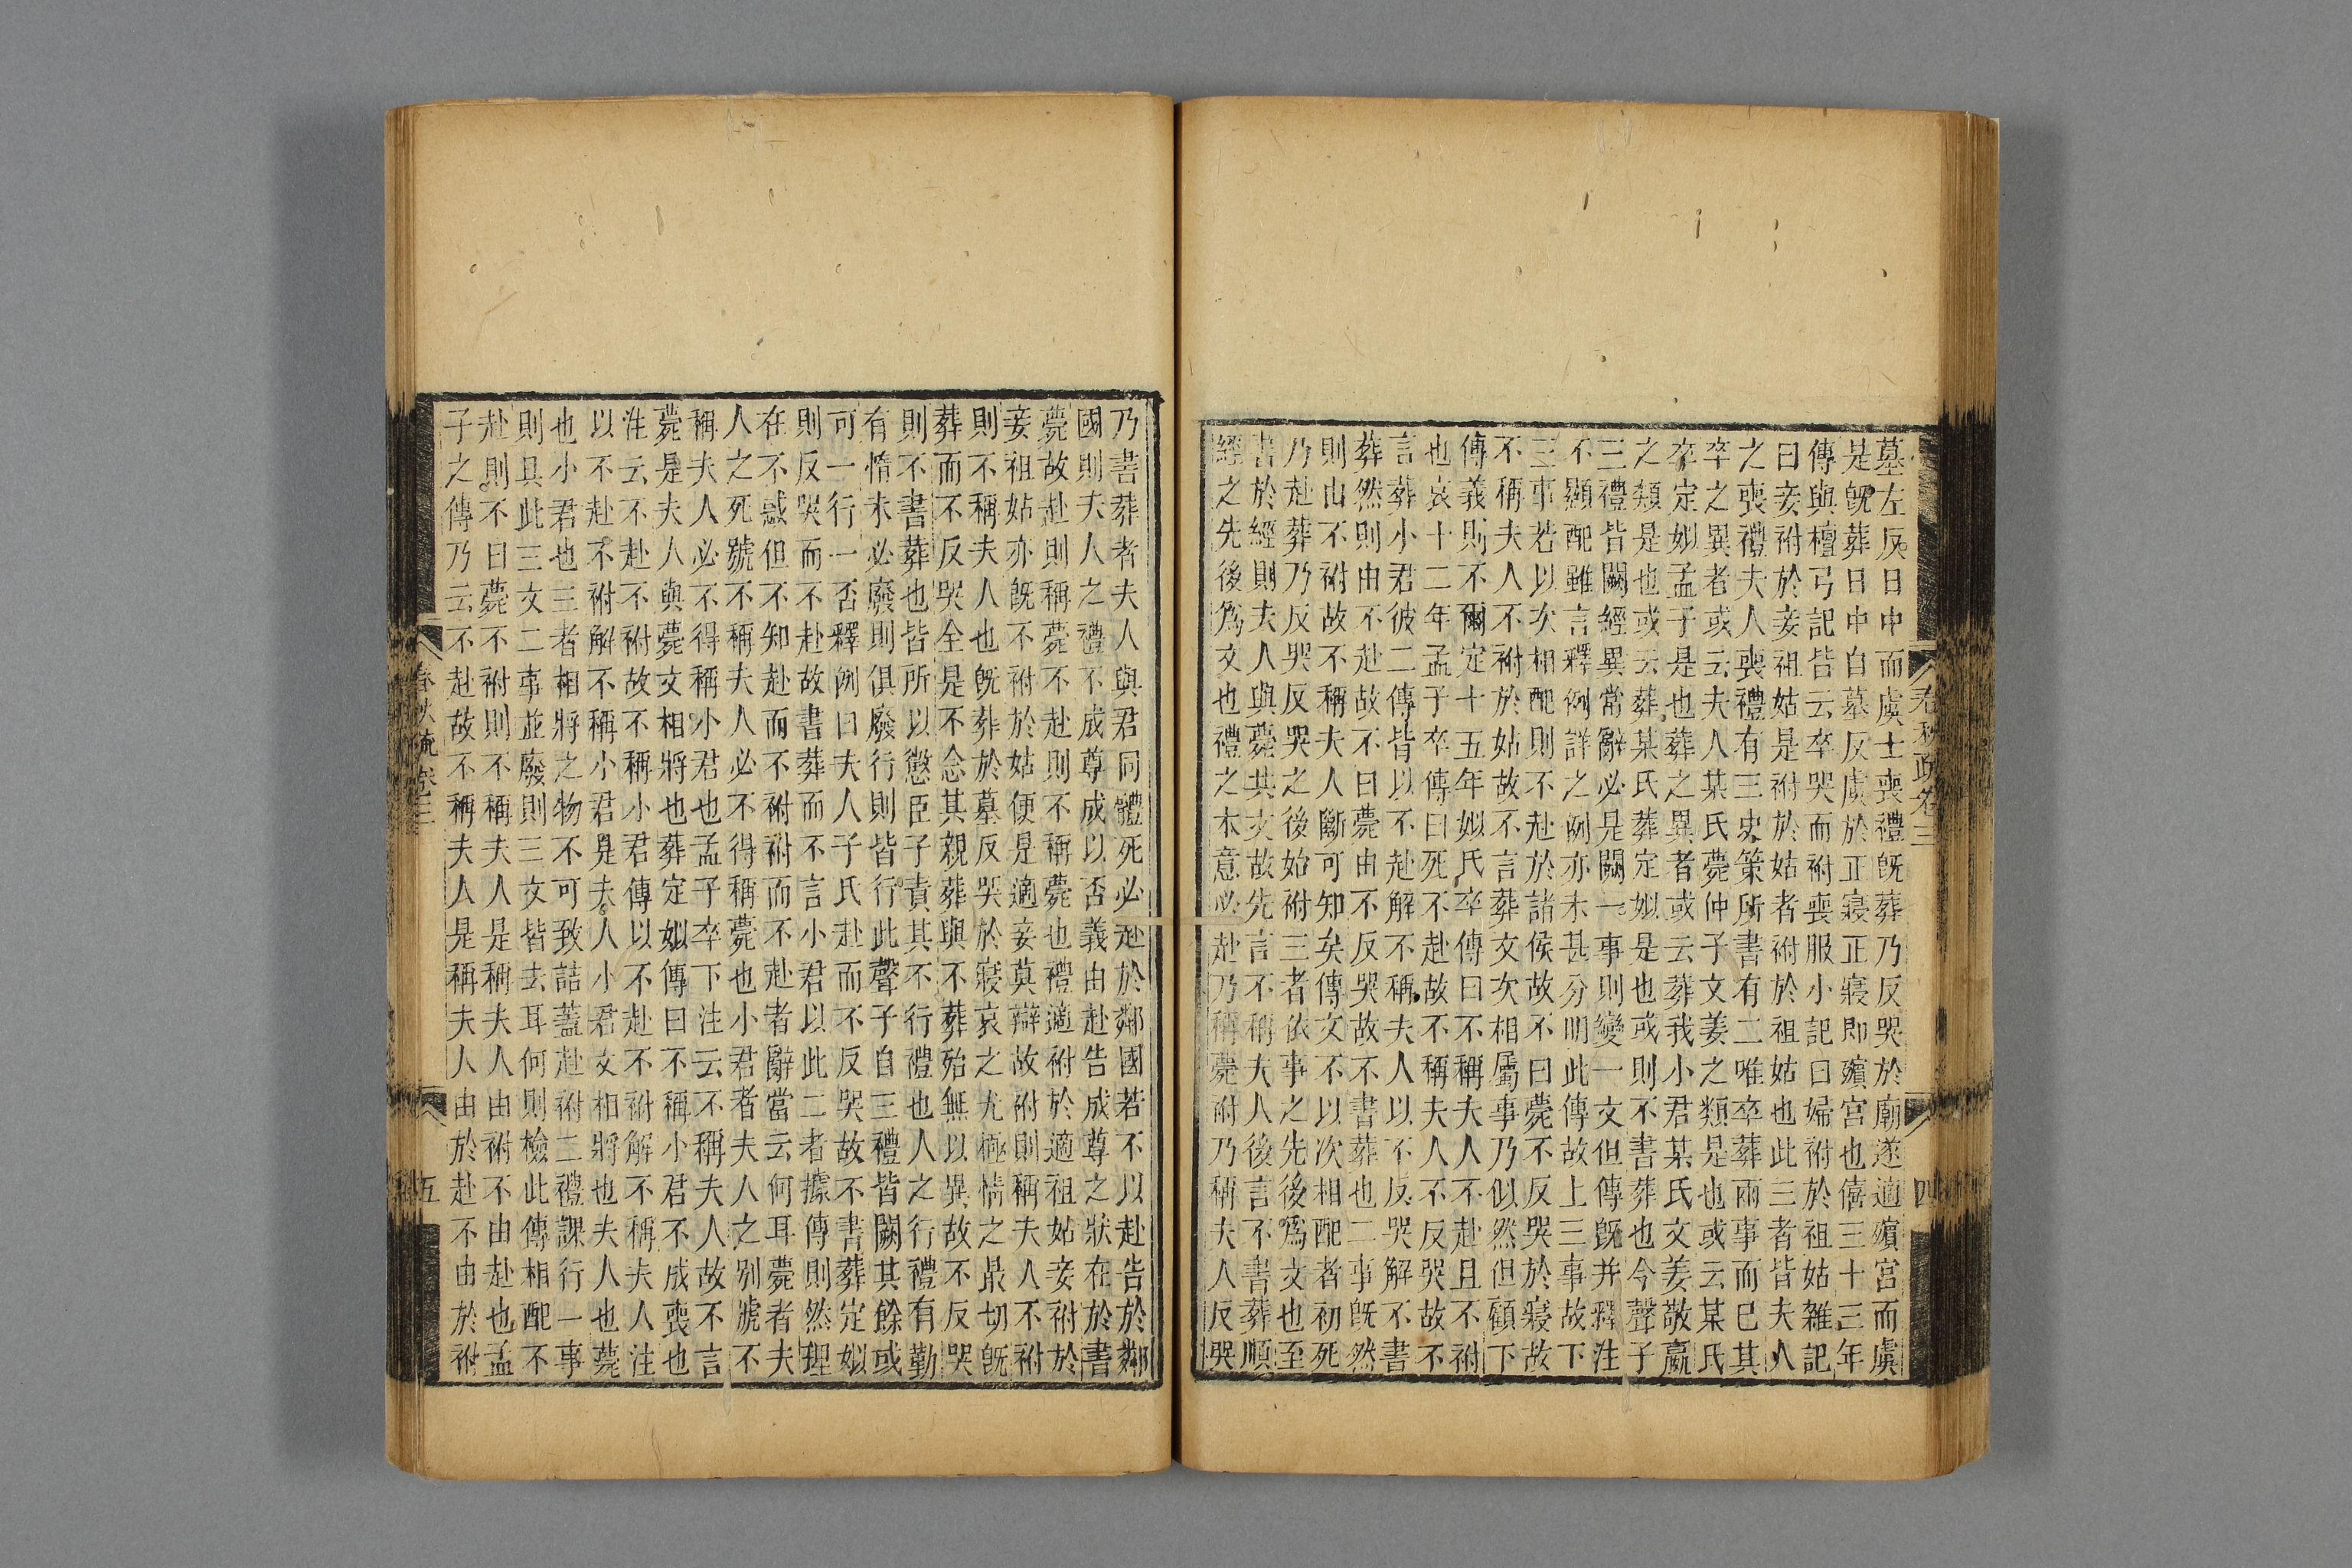 墓左反日中而虞士喪禮旣葬乃反哭於廟遂適殯宮而虞
是旣葬日中自墓反虞於正寢正寢即殯宮也僖三十三年
傳與檀弓記皆云卒哭而祔喪服小記曰婦祔於祖姑雜記
曰妾祔於妾祖姑是祔於姑者祔於祖姑也此三者皆夫人
之喪禮夫人喪禮有三史策所書有二唯卒葬兩事而已其
卒之異者或云夫人某氏薨仲子文姜之類是也或云某氏
卒定姒孟子是也葬之異者或云葬我小君某氏文姜敬嬴
之類是也或云葬某氏葬定姒是也或則不書葬也今聲子
三禮皆闕經異常辭必是闕一事則變一文但傳旣并釋注
不顯配雖言釋例詳之例亦未甚分明此傳故上三事故下
三事若以次相配則不赴於諸侯故不曰薨不反哭於寢故
不稱夫人不祔於姑故不言葬文次相屬事乃似然但顧下
傳義則不爾定十五年姒氏卒傳曰不稱夫人不赴且不祔
也哀十二年孟子卒傳曰死不赴故不稱夫人不反哭故不
言葬小君彼二傳皆以不赴解不稱夫人以不反哭解不書
葬然則由不赴故不曰薨由不反哭故不書葬也二事旣然
則由不祔故不稱夫人斷可知矣傳文不以次相配者初死
乃赴葬乃反哭反哭之後始祔三者依事之先後爲文也至
書於經則夫人與薨共文故先言不稱夫人後言不書葬順
經之先後爲文也禮之本意必赴乃稱薨祔乃稱夫人反哭
春秋疏卷三
四
乃書葬者夫人與君同體死必赴於鄰國若不以赴告於鄰
國則夫人之禮不成尊成以否義由赴告成尊之狀在於書
薨故赴則稱薨不赴則不稱薨也禮適祔於適祖姑妾祔於
妾祖姑亦旣不祔於姑便是適妾莫辯故祔則稱夫人不祔
則不稱夫人也旣葬於墓反哭於寢哀之尤極情之最切旣
葬而不反哭全是不念其親葬與不葬殆無以異故不反哭
則不書葬也皆所以懲臣子責其不行禮也人之行禮有勤
有惰未必廢則俱廢行則皆行此聲子自三禮皆闕其餘或
可一行一否釋例曰夫人子氏赴而不反哭故不書葬定姒
則反哭而不赴故書葬而不言小君以此二者據傳則然理
在不惑但不知赴而不祔祔而不赴者辭當云何耳薨者夫
人之死號不稱夫人必不得稱薨也小君者夫人之別號不
稱夫人必不得稱小君也孟子卒下注云不稱夫人故不言
薨是夫人與薨文相將也葬定姒傳曰不稱小君不成喪也
注云不赴不祔故不稱小君傳以不赴不祔解不稱夫人注
以不赴不祔解不稱小君是夫人小君文相將也夫人也薨
也小君也三者相將之物不可致詰蓋赴祔二禮課行一事
則具此三文二事並廢則三文皆去耳何則檢此傳相配不
赴則不曰薨不祔則不稱夫人是稱夫人由祔不由赴也孟
子之傳乃云不赴故不稱夫人是稱夫人由於赴不由於祔
春秋疏卷三
五